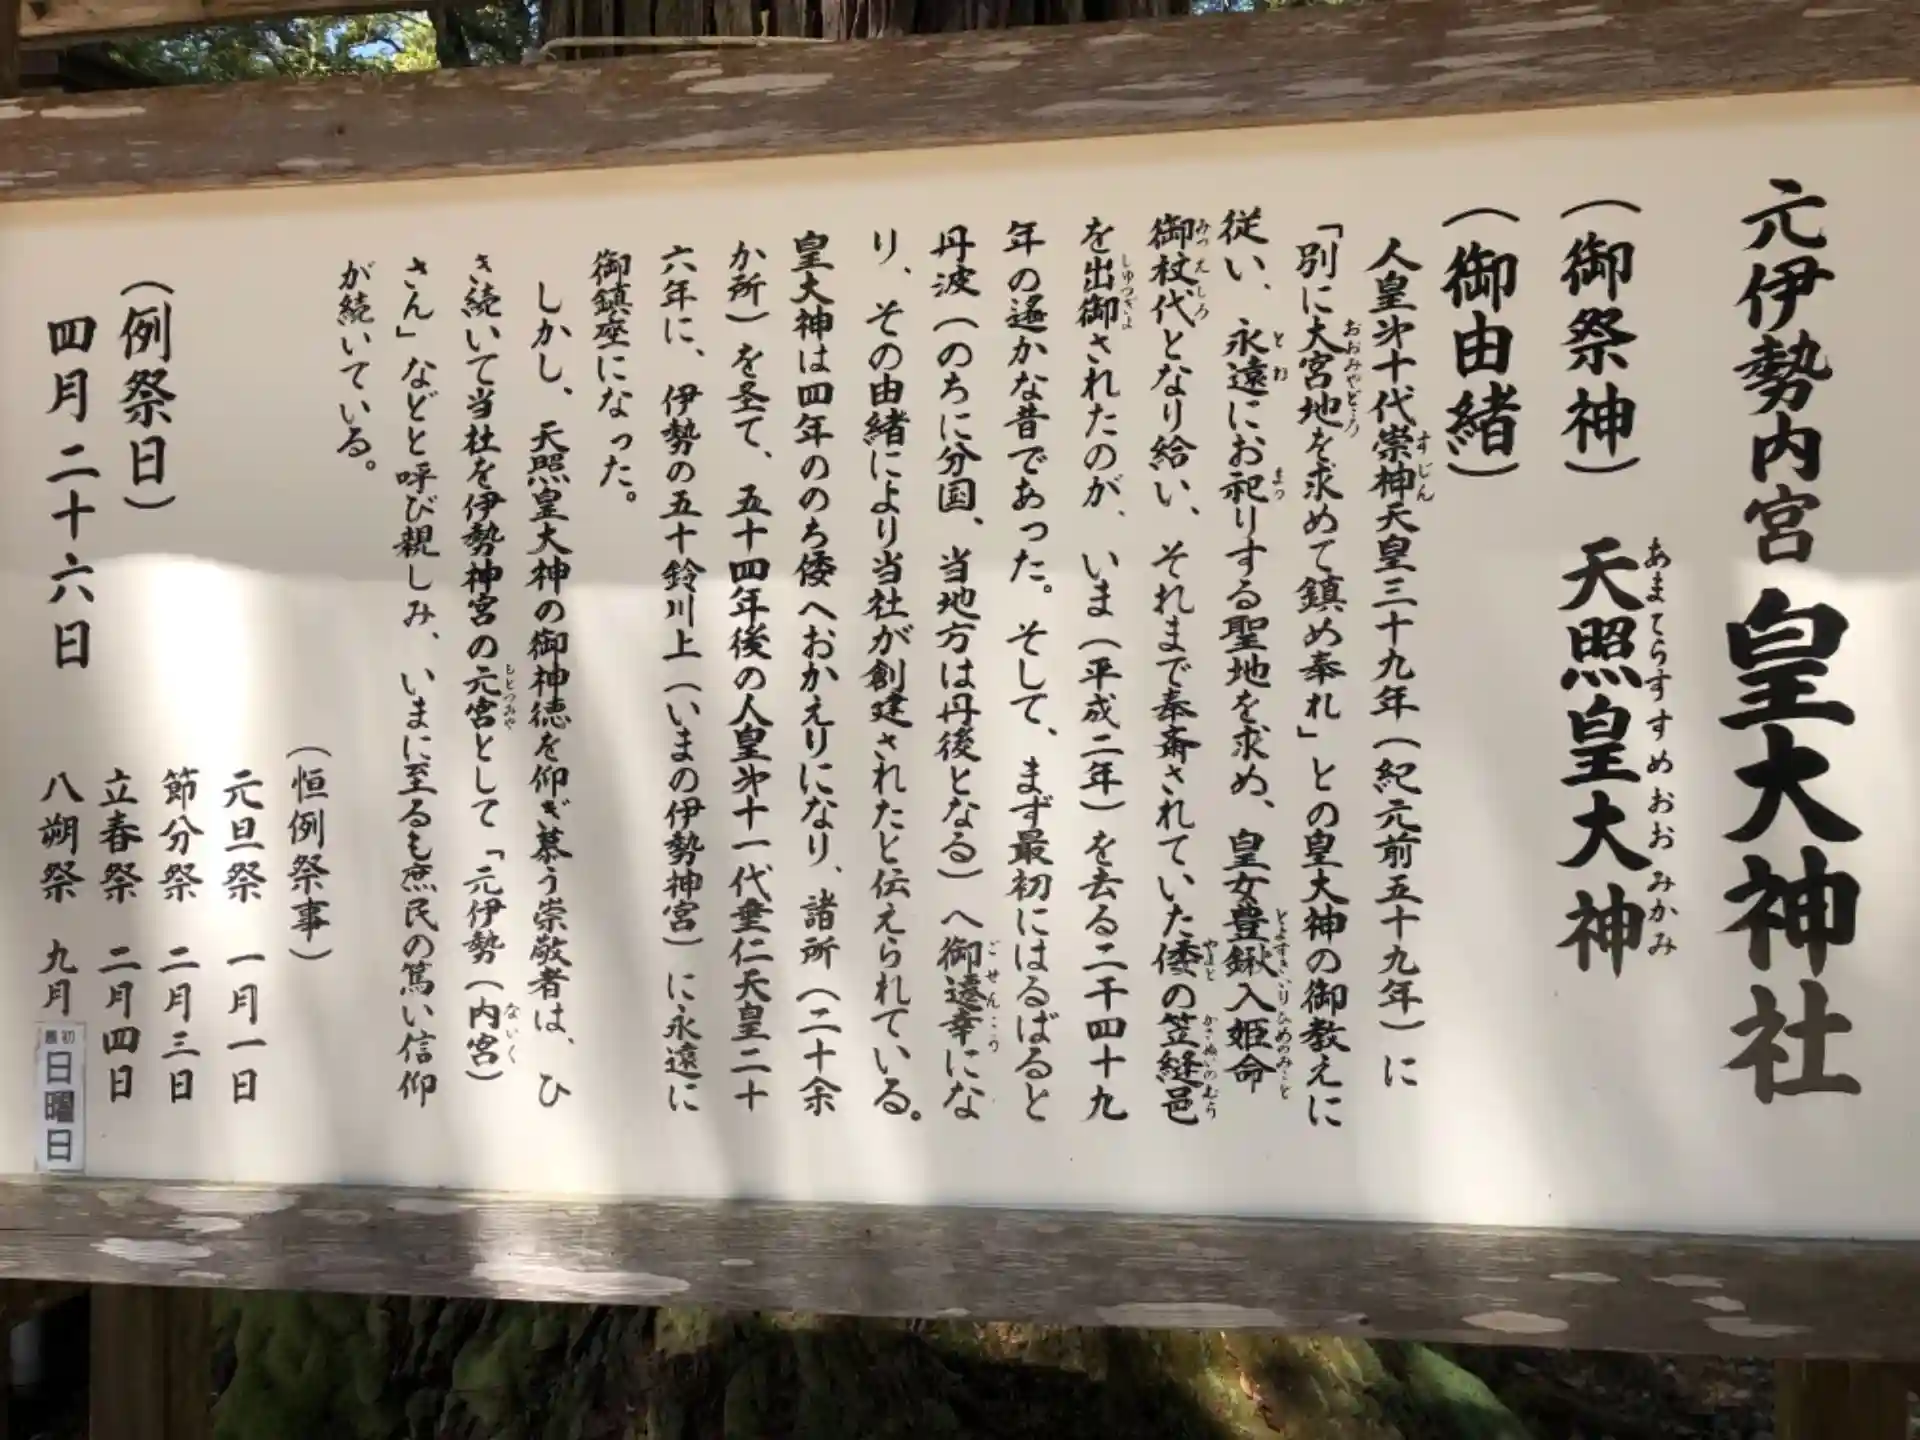 元伊勢内宮 皇大神社
（御祭神） 天照皇大神
あまてらすすめおおみかみ
（御由緒）
人皇第十代崇神天皇三十九年（紀元前五十九年）に
すじん
「別に大宮地を求めて鎮め奉れ」との皇大神の御教えに
おおみやどころ
従い、永遠にお祀りする聖地を求め、皇女豊鍬入姫命
とわ まつ とよすきいりひめのみこと
御杖代となり給い、それまで奉斎されていた倭の笠縫邑
みつえしろ やまと かさぬいのむら
を出御されたのが、いま（平成二年）を去る二千四十九
しゅつぎょ
年の遥かな昔であった。そして、まず最初にはるばると
丹波（のちに分国、当地方は丹後となる）へ御遷幸にな
ごせんこう
り、その由緒により当社が創建されたと伝えられている。
皇大神は四年ののち倭へおかえりになり、諸所（二十余
か所）を圣て、五十四年後の人皇第十一代垂仁天皇二十
六年に、伊勢の五十鈴川上（いまの伊勢神宮）に永遠に
御鎮座になった。
しかし、天照皇大神の御神徳を仰ぎ慕う崇敬者は、ひ
き続いて当社を伊勢神宮の元宮として「元伊勢（内宮）
もとつみや ないく
さん」などと呼び親しみ、いまに至るも庶民の篤い信仰
が続いている。
（恒例祭事）
元旦祭 一月一日
節分祭 二月三日
立春祭 二月四日
八朔祭 九月 最初日曜日
（例祭日）
四月二十六日